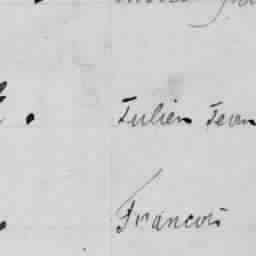 Julien Jean
François